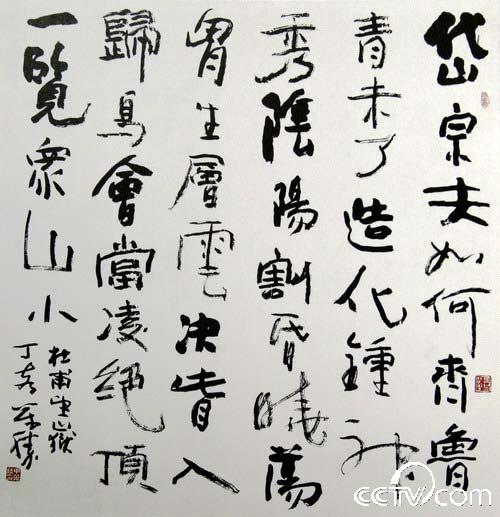 岱宗夫如何齊魯
青未了造化鍾神
秀陰陽割昏曉蕩
胷生層雲决眥入
歸鳥會當凌絕頂
一覽眾山小
杜甫望嶽
丁亥
CCTV.com